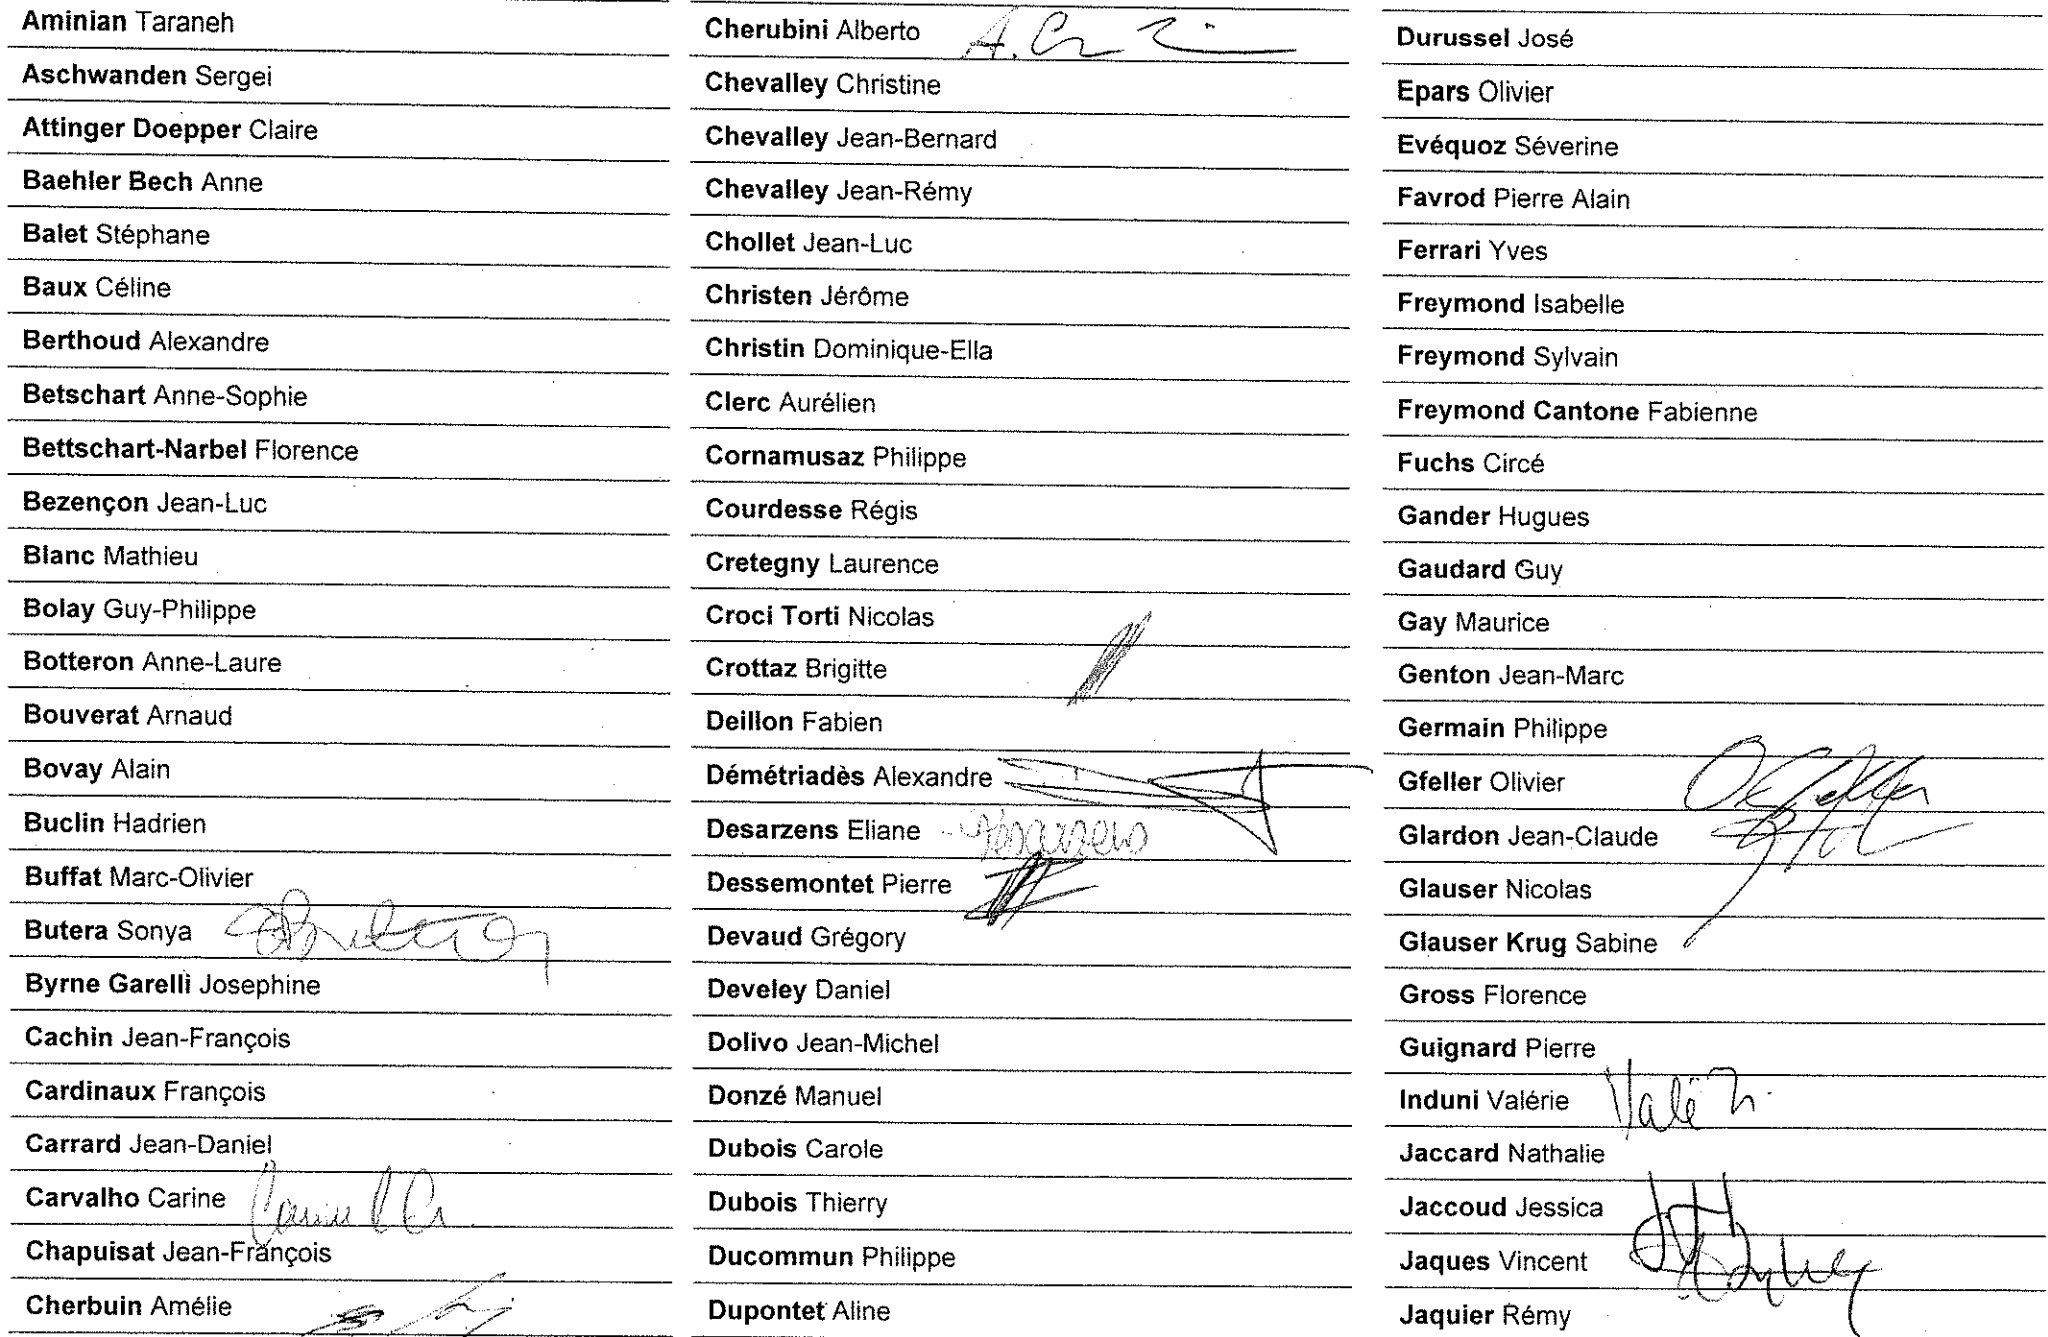 Aminian Taraneh
Aschwanden Sergei
Attinger Doepper Claire
Baehler Bech Anne
Balet Stéphane
Baux Céline
Berthoud Alexandre
Betschart Anne-Sophie
Bettschart-Narbel Florence
Bezençon Jean-Luc
Blanc Mathieu
Bolay Guy-Philippe
Botteron Anne-Laure
Bouverat Arnaud
Bovay Alain
Buclin Hadrien
Buffat Marc-Olivier
Butera Sonya
Byrne Garelli Josephine
Cachin Jean-François
Cardinaux François
Carrard Jean-Daniel
Carvalho Carine
Chapuisat Jean-François
Cherbuin Amélie
Cherubini Alberto
Chevalley Christine
Chevalley Jean-Bernard
Chevalley Jean-Rémy
Chollet Jean-Luc
Christen Jérôme
Christin Dominique-Ella
Clerc Aurélien
Cornamusaz Philippe
Courdesse Régis
Cretegny Laurence
Croci Torti Nicolas
Crottaz Brigitte
Deillon Fabien
Démétriadès Alexandre
Desarzens Eliane Desarzens
Dessemontet Pierre
Devaud Grégory
Develey Daniel
Dolivo Jean-Michel
Donzé Manuel
Dubois Carole
Dubois Thierry
Ducommun Philippe
Dupontet Aline
Durussel José
Epars Olivier
Evéquoz Séverine
Favrod Pierre Alain
Ferrari Yves
Freymond Isabelle
Freymond Sylvain
Freymond Cantone Fabienne
Fuchs Circé
Gander Hugues
Gaudard Guy
Gay Maurice
Genton Jean-Marc
Germain Philippe
Gfeller Olivier
Glardon Jean-Claude
Glauser Nicolas
Glauser Krug Sabine
Gross Florence
Guignard Pierre
Induni Valérie
Jaccard Nathalie
Jaccoud Jessica
Jaques Vincent
Jaquier Rémy